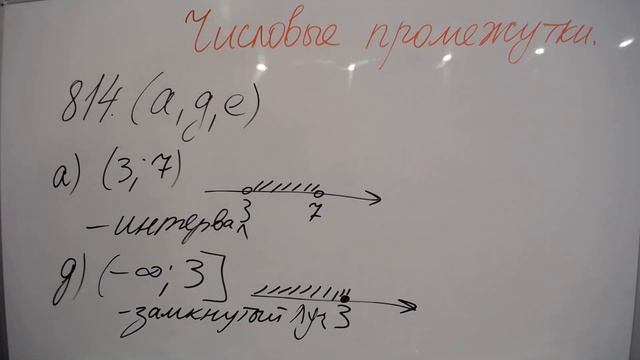 Числовые промежутки.
814. (а, д, е)
с
а) (3; 7)
3 7
- интервал
д) (-∞; 3]
- замкнутый луч 3